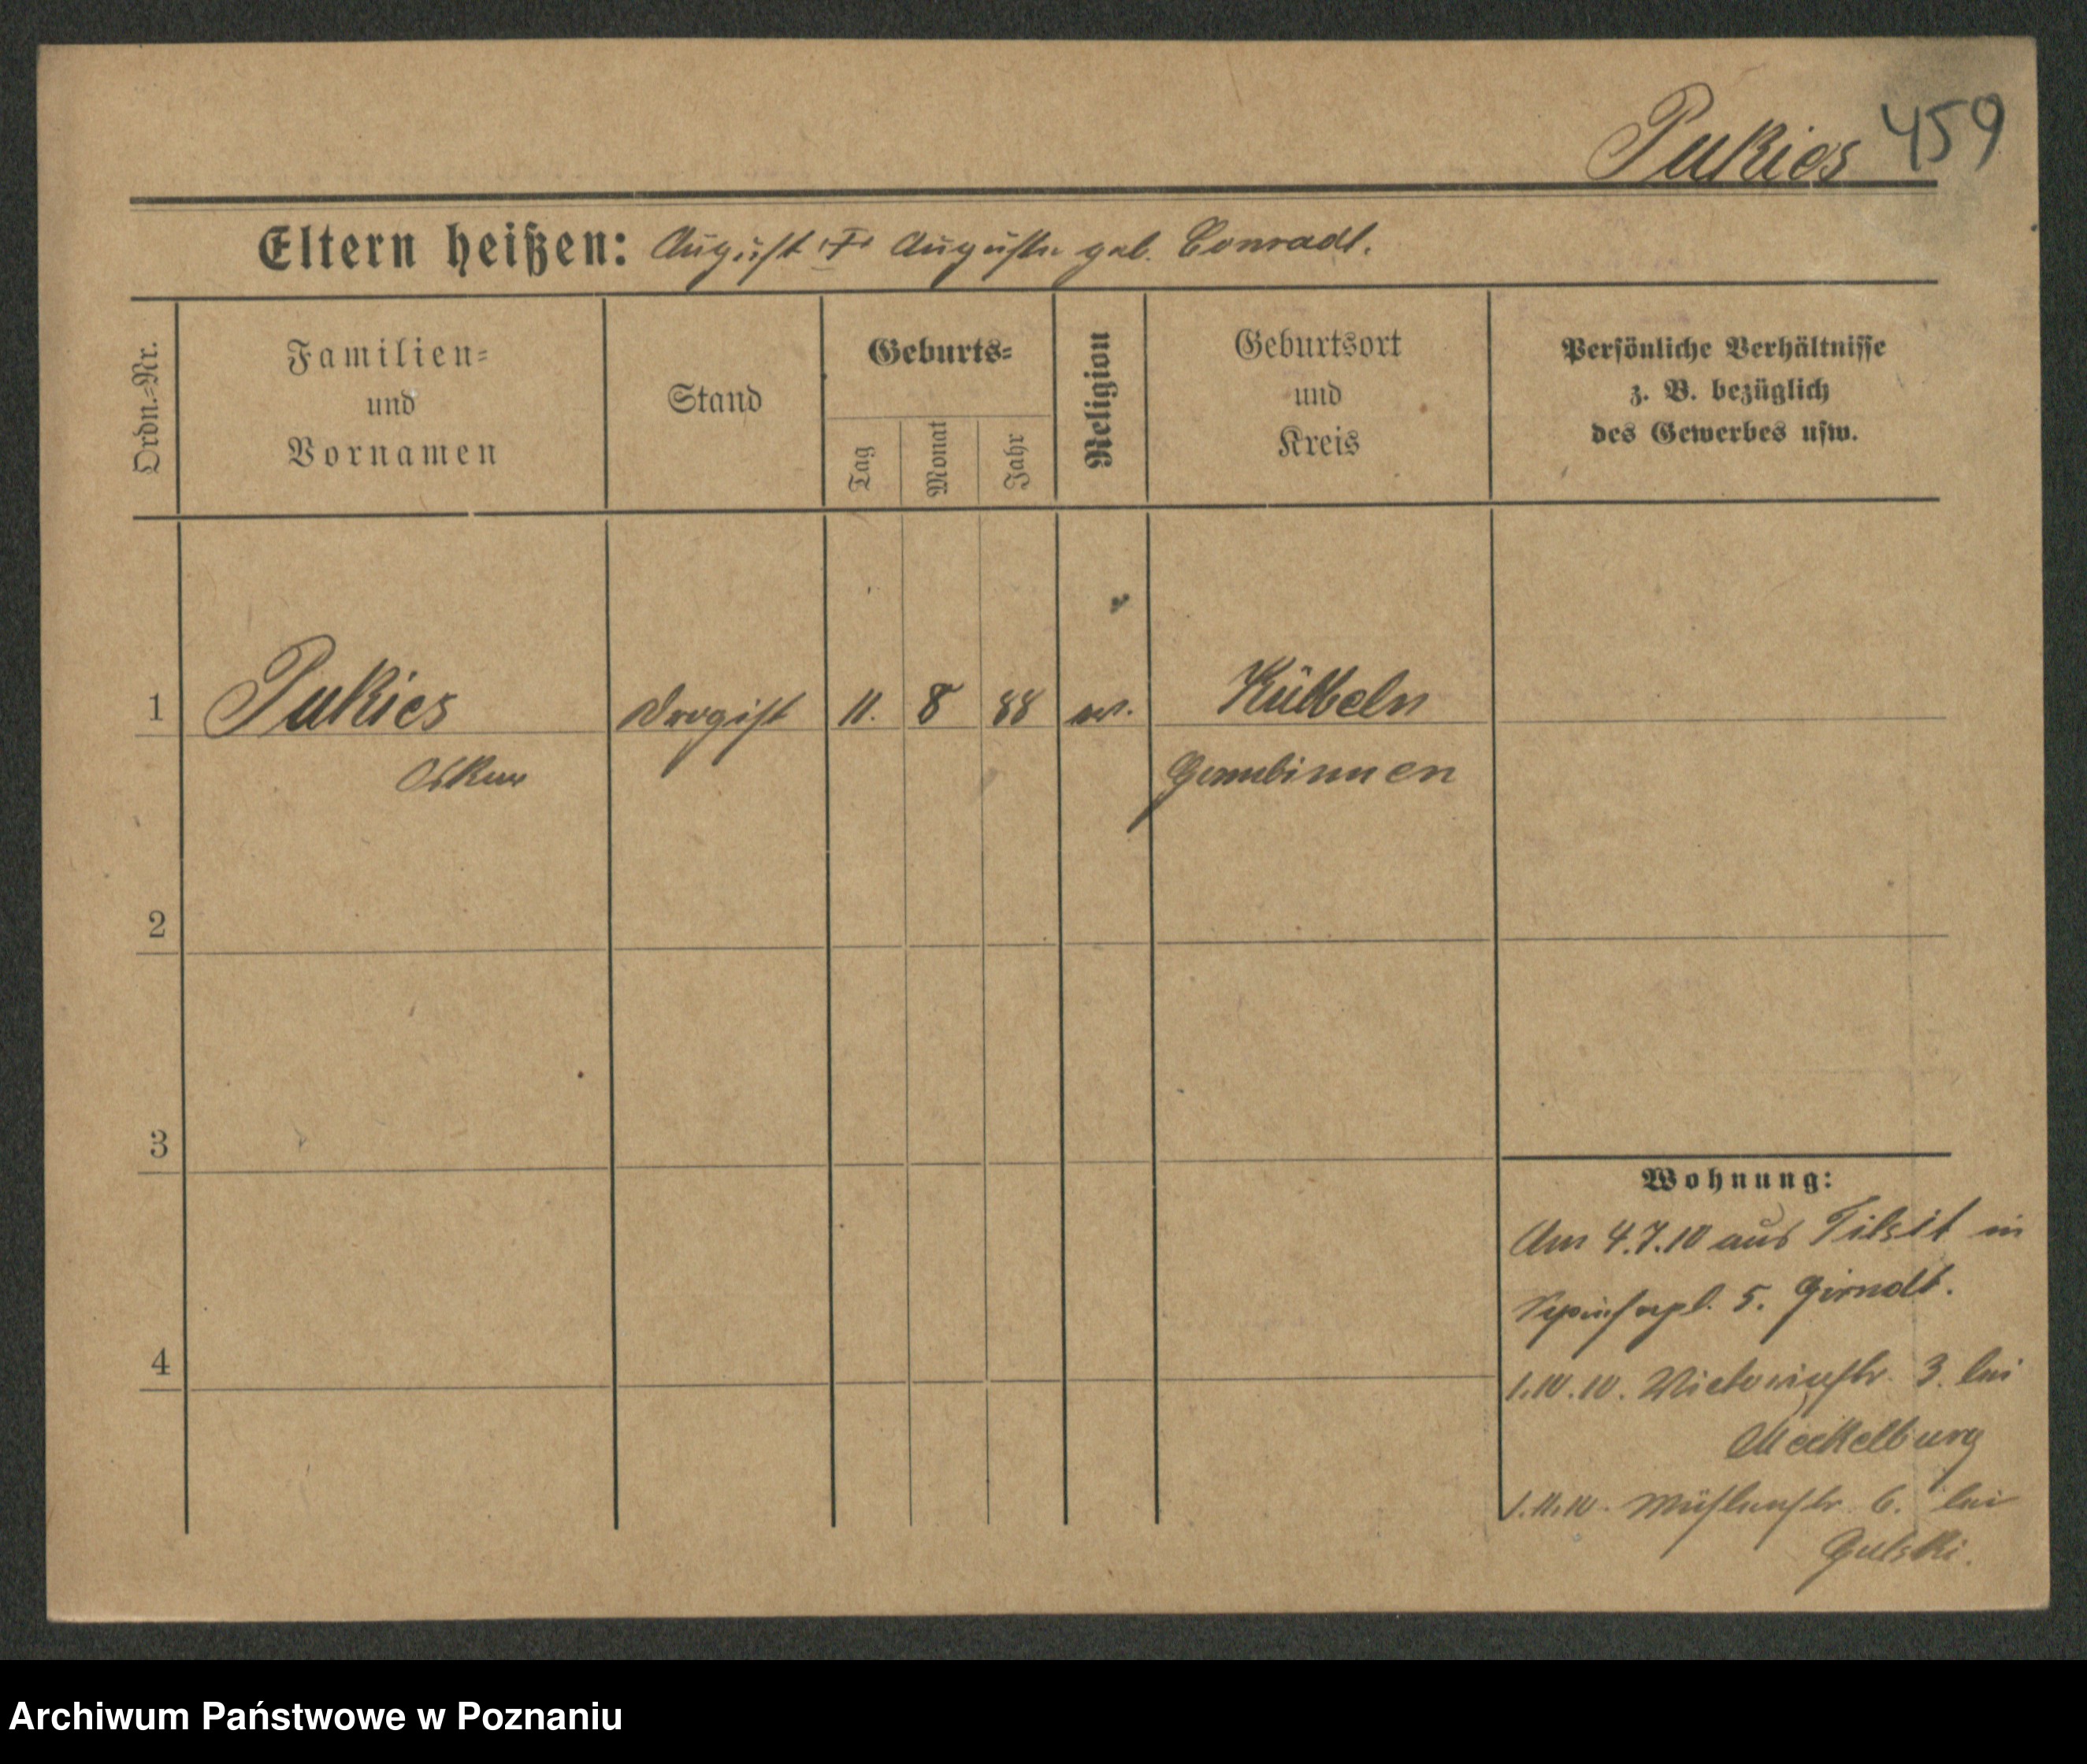 Pukies 459
Eltern heißen: August † Auguste geb. Conradt.
Ordn.=Nr.
Familien=
und
Vornamen
Stand
Geburts=
Tag
Monat
Jahr
Religion
Geburtsort
und
Kreis
Persönliche Verhältnisse
z. B. bezüglich
des Gewerbes usw.
1 Pukies Drogist 11. 8 88 ev. Külbeln
Oskar Gumbinnen
2
3
4
Wohnung:
Am 4.7.10 aus Tilsit in
5. Girndt.
1.10.10. Victoriastr. 3. bei
Meckelburg
1.11.10. Mühlenstr. 6. bei
Gulski.
Archiwum Państwowe w Poznaniu